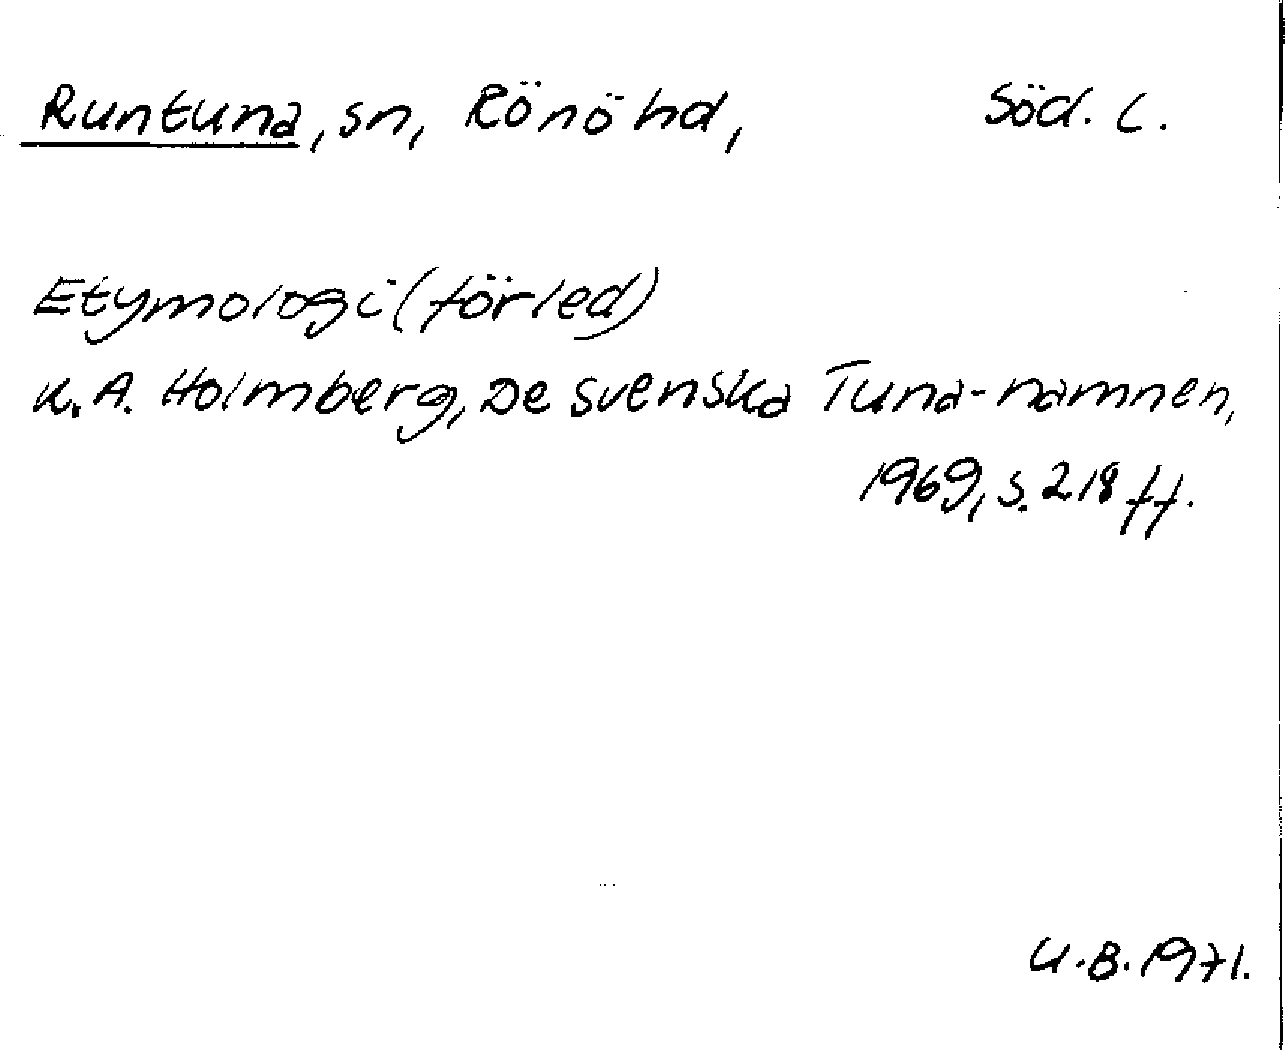 Runtuna, sn, Rönö hd, Söd. L.
Etymologi (förled)
K. A. Holmberg, De svenska Tuna-namnen,
1969, s. 218 ff.
U.B. 1971.